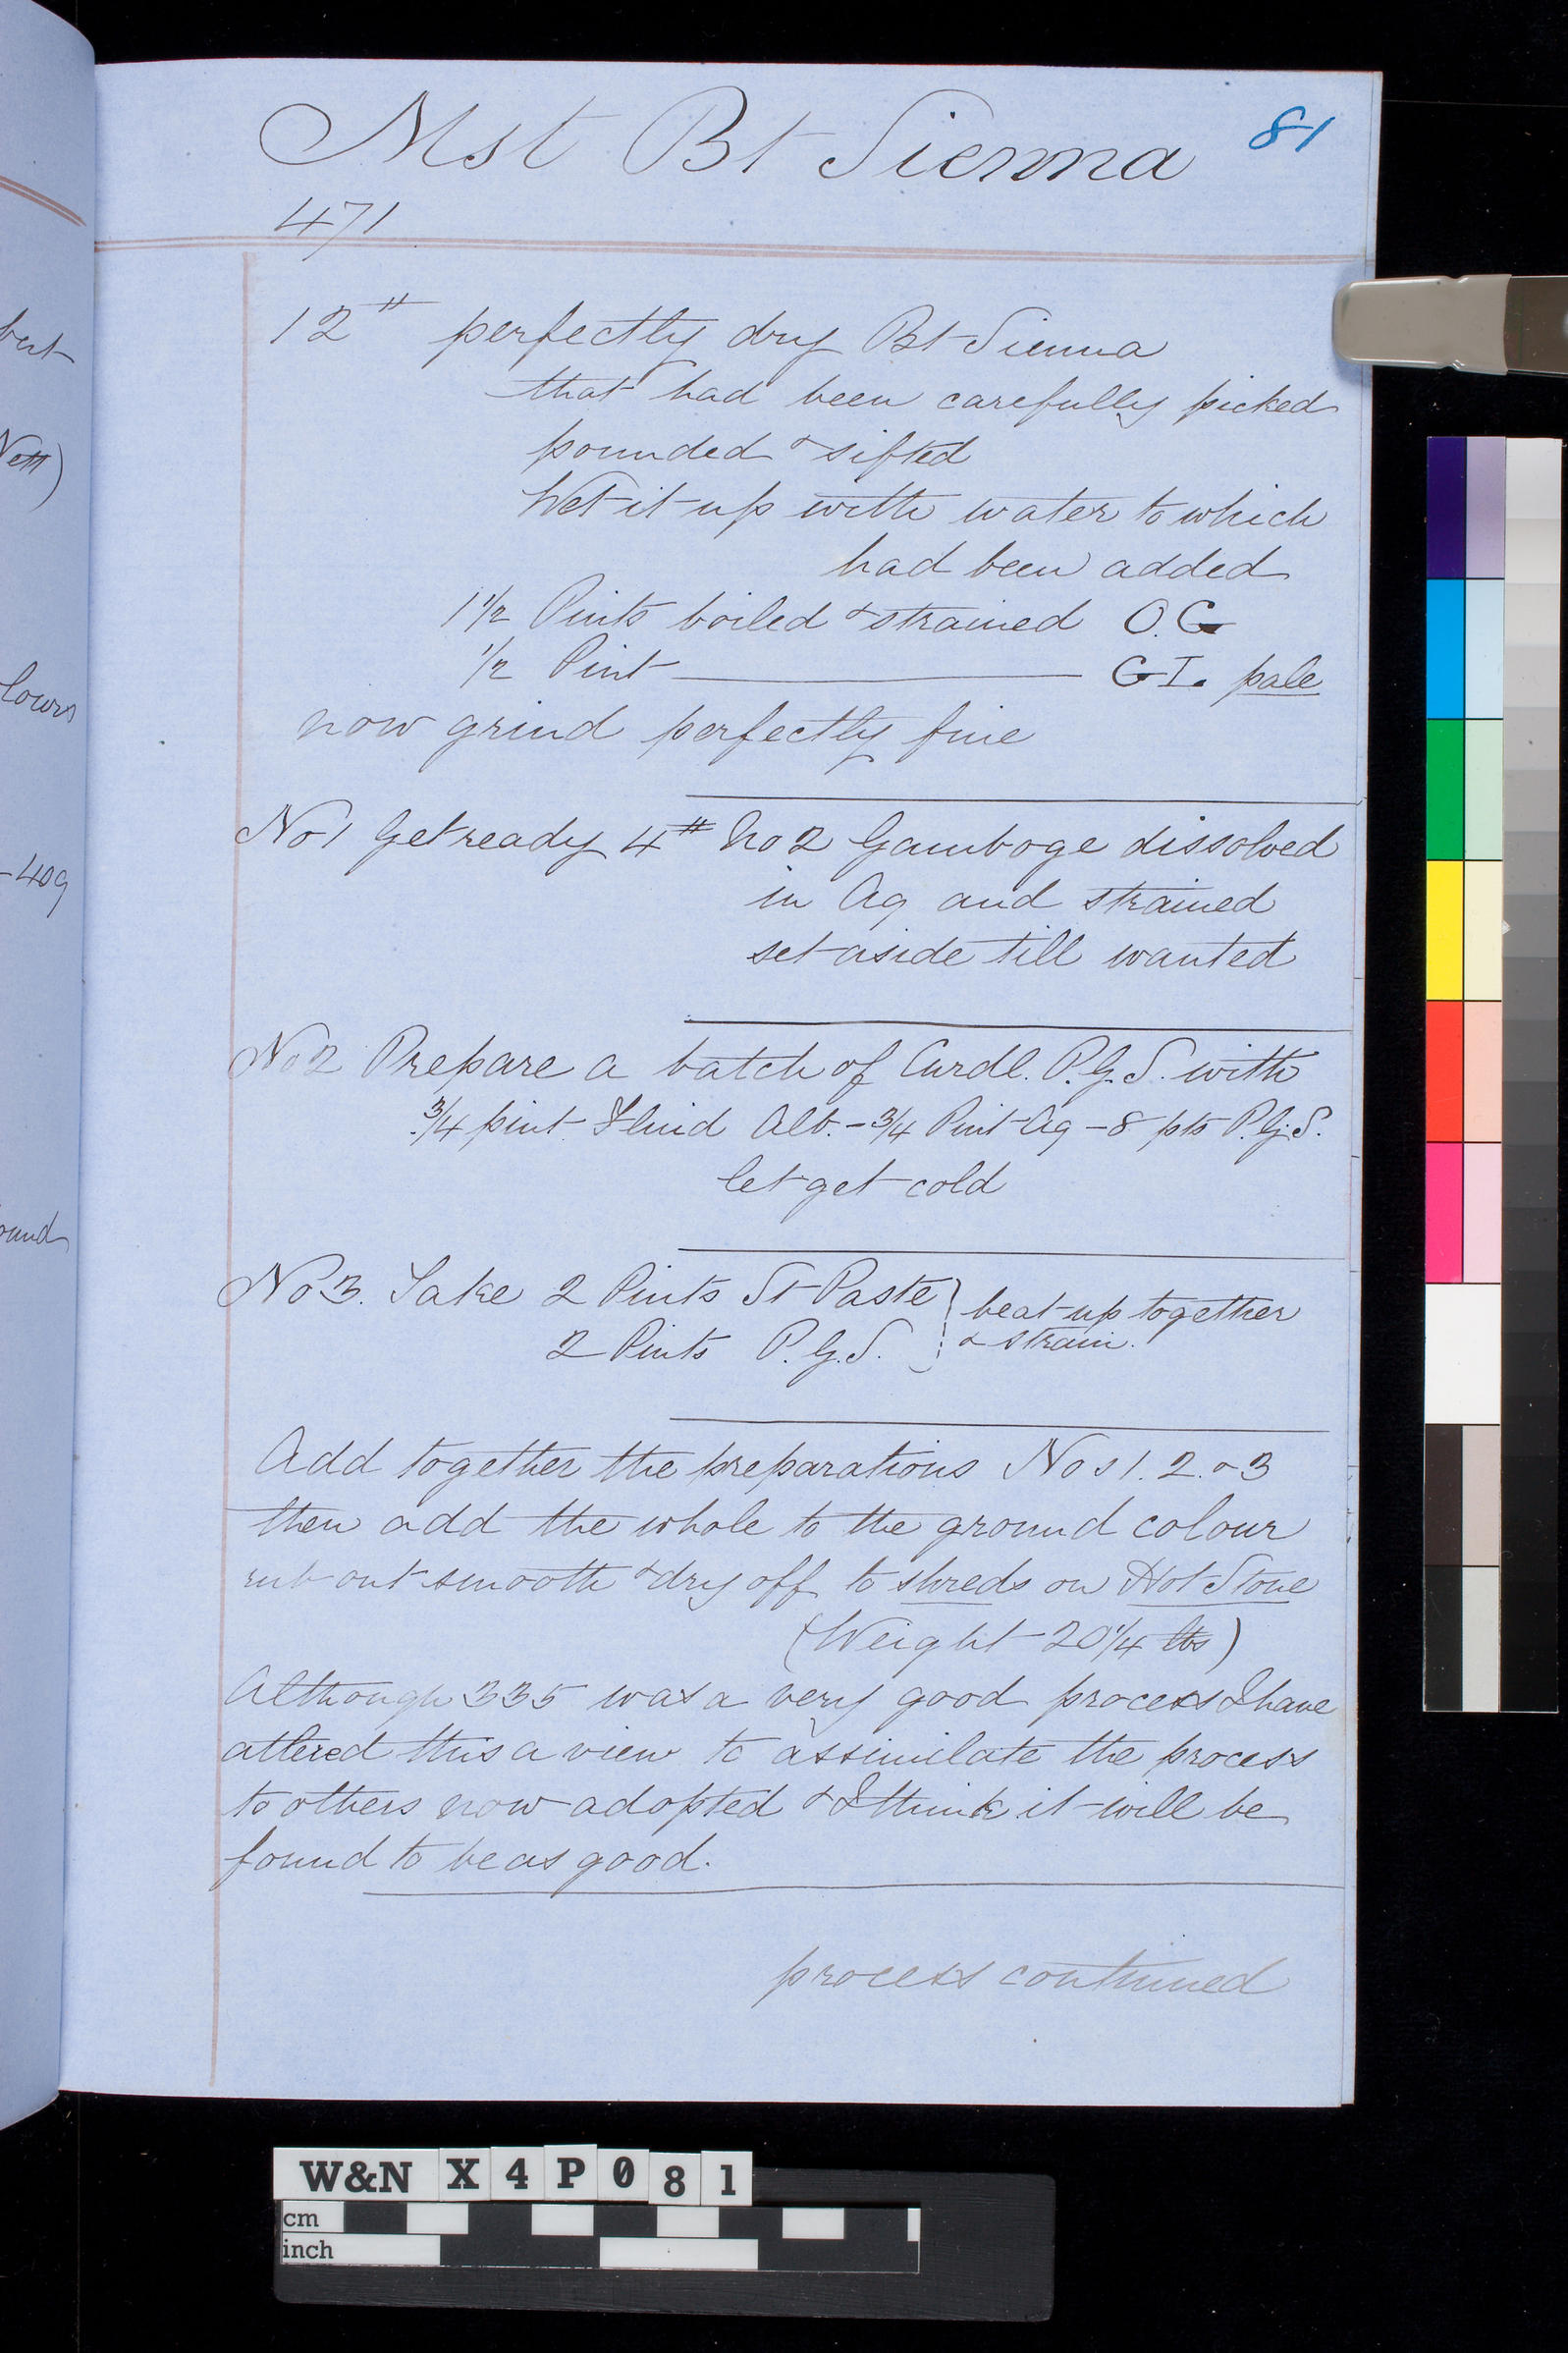 Mst Bt Sienna
81
471
12# perfectly dry Bt Sienna
that had been carefully picked
pounded & sifted
Wet it up with water to which
had been added
1 1/2 Pints boiled & strained O.G
1/2 Pint ———— GI. pale
now grind perfectly fine
No 1 Get ready 4# No 2 Gamboge dissolved
in Aq and strained
set aside till wanted
No 2 Prepare a batch of Curdl. P.G.S. with
3/4 pint Fluid Alb. - 3/4 Pint Aq - 8 pts P.G.S.
let get cold
No 3. Take 2 Pints St Paste } beat up together
2 Pints P.G.S. } & strain.
Add together the preparations Nos 1. 2. & 3
then add the whole to the ground colour
rub out smooth & dry off to shreds on Hot Stone
(Weight 20 1/4 lbs)
Although 335 was a very good process I have
altered this a view to assimilate the process
to others now adopted & I think it will be
found to be as good.
process continued
lours
-409
ound
W&N X4P081
cm
inch